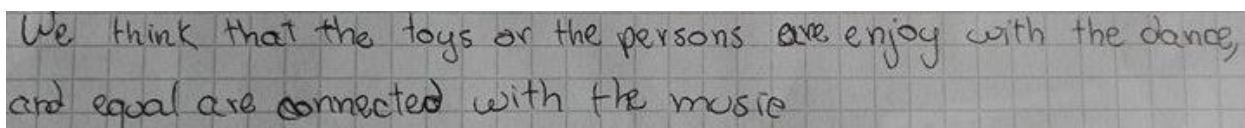 We think that the toys or the persons are enjoy with the dance,
and equal are connected with the music